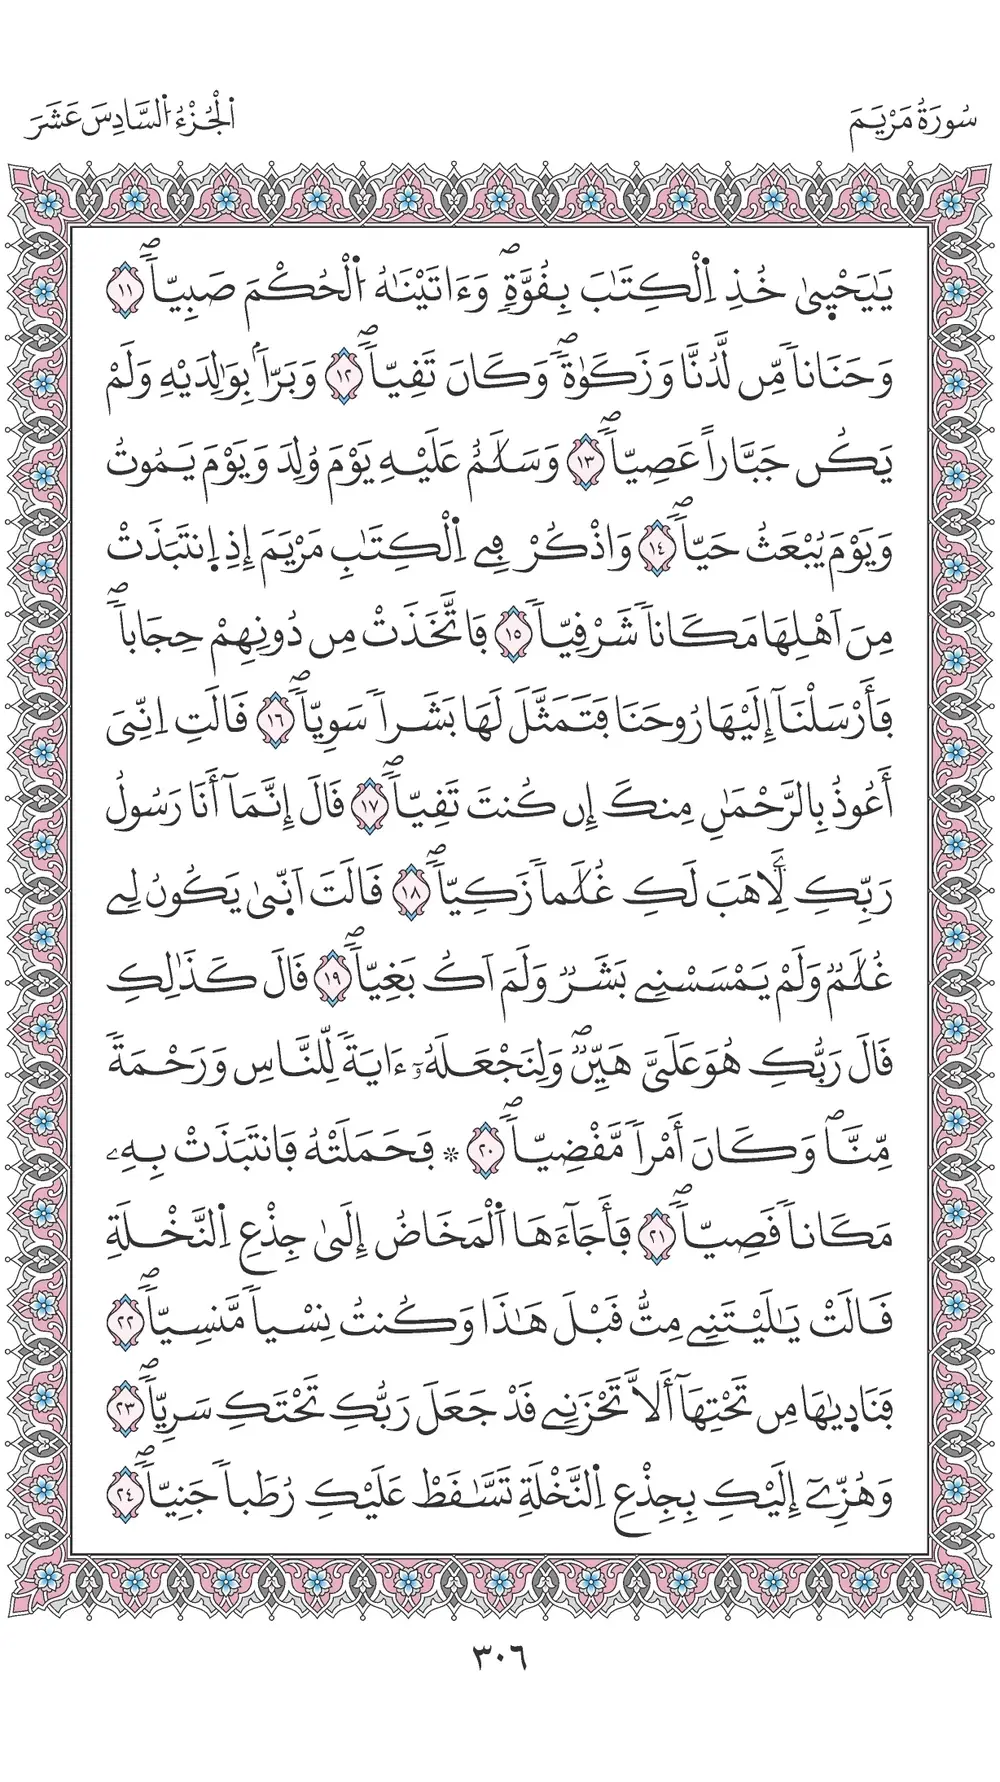 سُورَةُ مَرْيَمَ
اَ۬لْجُزْءُ اُ۬لسَّادِسَ عَشَرَ
يَٰيَحْي۪يٰ خُذِ اِ۬لْكِتَٰبَ بِقُوَّةٖۖ وَءَاتَيْنَٰهُ اُ۬لْحُكْمَ صَبِيّاٗۖ ۝١١
وَحَنَاناٗ مِّن لَّدُنَّا وَزَكَوٰةٗۖ وَكَانَ تَقِيّاٗۖ ۝١٢ وَبَرّاَۢ بِوَٰلِدَيْهِ وَلَمْ
يَكُن جَبَّاراً عَصِيّاٗۖ ۝١٣ وَسَلَٰمٌ عَلَيْهِ يَوْمَ وُلِدَ وَيَوْمَ يَمُوتُ
وَيَوْمَ يُبْعَثُ حَيّاٗۖ ۝١٤ وَاذْكُرْ فِے اِ۬لْكِتَٰبِ مَرْيَمَ إِذِ اِ۪نتَبَذَتْ
مِنَ اَهْلِهَا مَكَاناٗ شَرْقِيّاٗ ۝١٥ فَاتَّخَذَتْ مِن دُونِهِمْ حِجَاباٗۖ
فَأَرْسَلْنَآ إِلَيْهَا رُوحَنَا فَتَمَثَّلَ لَهَا بَشَراٗ سَوِيّاٗۖ ۝١٦ قَالَتِ اِنِّيَ
أَعُوذُ بِالرَّحْمَٰنِ مِنكَ إِن كُنتَ تَقِيّاٗۖ ۝١٧ قَالَ إِنَّمَآ أَنَا رَسُولُ
رَبِّكِ لِأَهَبَ لَكِ غُلَٰماٗ زَكِيّاٗۖ ۝١٨ قَالَتَ اَنّ۪يٰ يَكُونُ لِے
غُلَٰمٞ وَلَمْ يَمْسَسْنِے بَشَرٞ وَلَمَ اَكُ بَغِيّاٗۖ ۝١٩ قَالَ كَذَٰلِكِ
قَالَ رَبُّكِ هُوَ عَلَيَّ هَيِّنٞۖ وَلِنَجْعَلَهُۥٓ ءَايَةٗ لِّلنَّاسِ وَرَحْمَةٗ
مِّنَّاۖ وَكَانَ أَمْراٗ مَّقْضِيّاٗۖ ۝٢٠ ۞ فَحَمَلَتْهُ فَانتَبَذَتْ بِهِۦ
مَكَاناٗ قَصِيّاٗۖ ۝٢١ فَأَجَآءَهَا اَ۬لْمَخَاضُ إِلَىٰ جِذْعِ اِ۬لنَّخْلَةِ
قَالَتْ يَٰلَيْتَنِے مِتُّ قَبْلَ هَٰذَا وَكُنتُ نِسْياٗ مَّنسِيّاٗۖ ۝٢٢
فَنَاد۪يٰهَا مِن تَحْتِهَآ أَلَّا تَحْزَنِے قَدْ جَعَلَ رَبُّكِ تَحْتَكِ سَرِيّاٗۖ ۝٢٣
وَهُزِّےٓ إِلَيْكِ بِجِذْعِ اِ۬لنَّخْلَةِ تَسَّٰقَطْ عَلَيْكِ رُطَباٗ جَنِيّاٗۖ ۝٢٤
٣٠٦